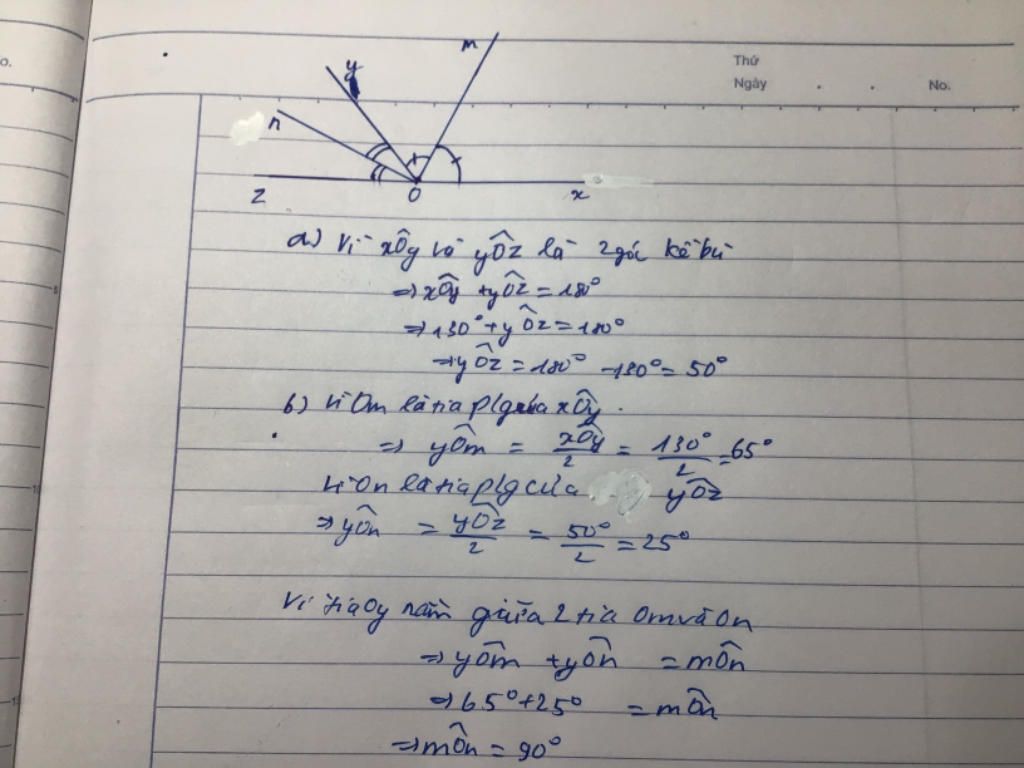 o.
Thứ
Ngày
No.
m
y
n
z
O
x
a) Vì xÔy và yÔz là 2 góc kề bù
⇒ xÔy + yÔz = 180°
⇒ 130° + yÔz = 180°
⇒ yÔz = 180° - 130° = 50°
b) Vì Om là tia p/g của xÔy.
⇒ yÔm = xÔy/2 = 130°/2 = 65°
Vì On là tia p/g của yÔz
⇒ yÔn = yÔz/2 = 50°/2 = 25°
Vì tia Oy nằm giữa 2 tia Om và On
⇒ yÔm + yÔn = mÔn
⇒ 65° + 25° = mÔn
⇒ mÔn = 90°